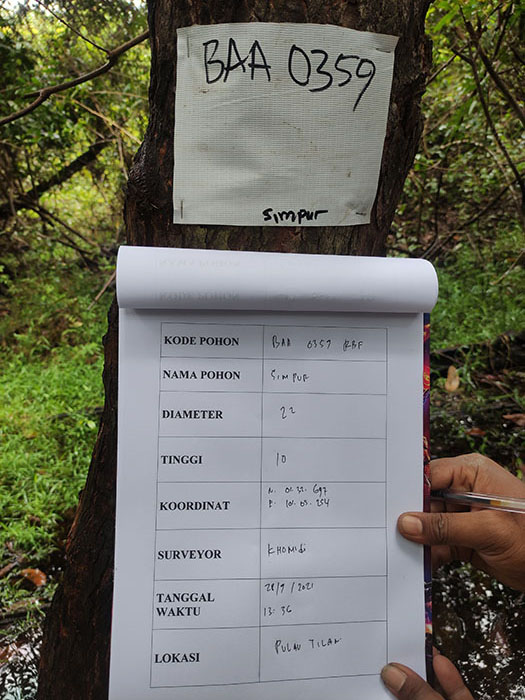 BAA 0359
simpur
KODE POHON BAA 0359 RBF
NAMA POHON SIMPUR
DIAMETER 22
TINGGI 10
KOORDINAT N. 01. 32. 697
E. 101. 05. 254
SURVEYOR KHOMIdi
TANGGAL 28/9/2021
WAKTU 13.36
LOKASI PULAU TILAN